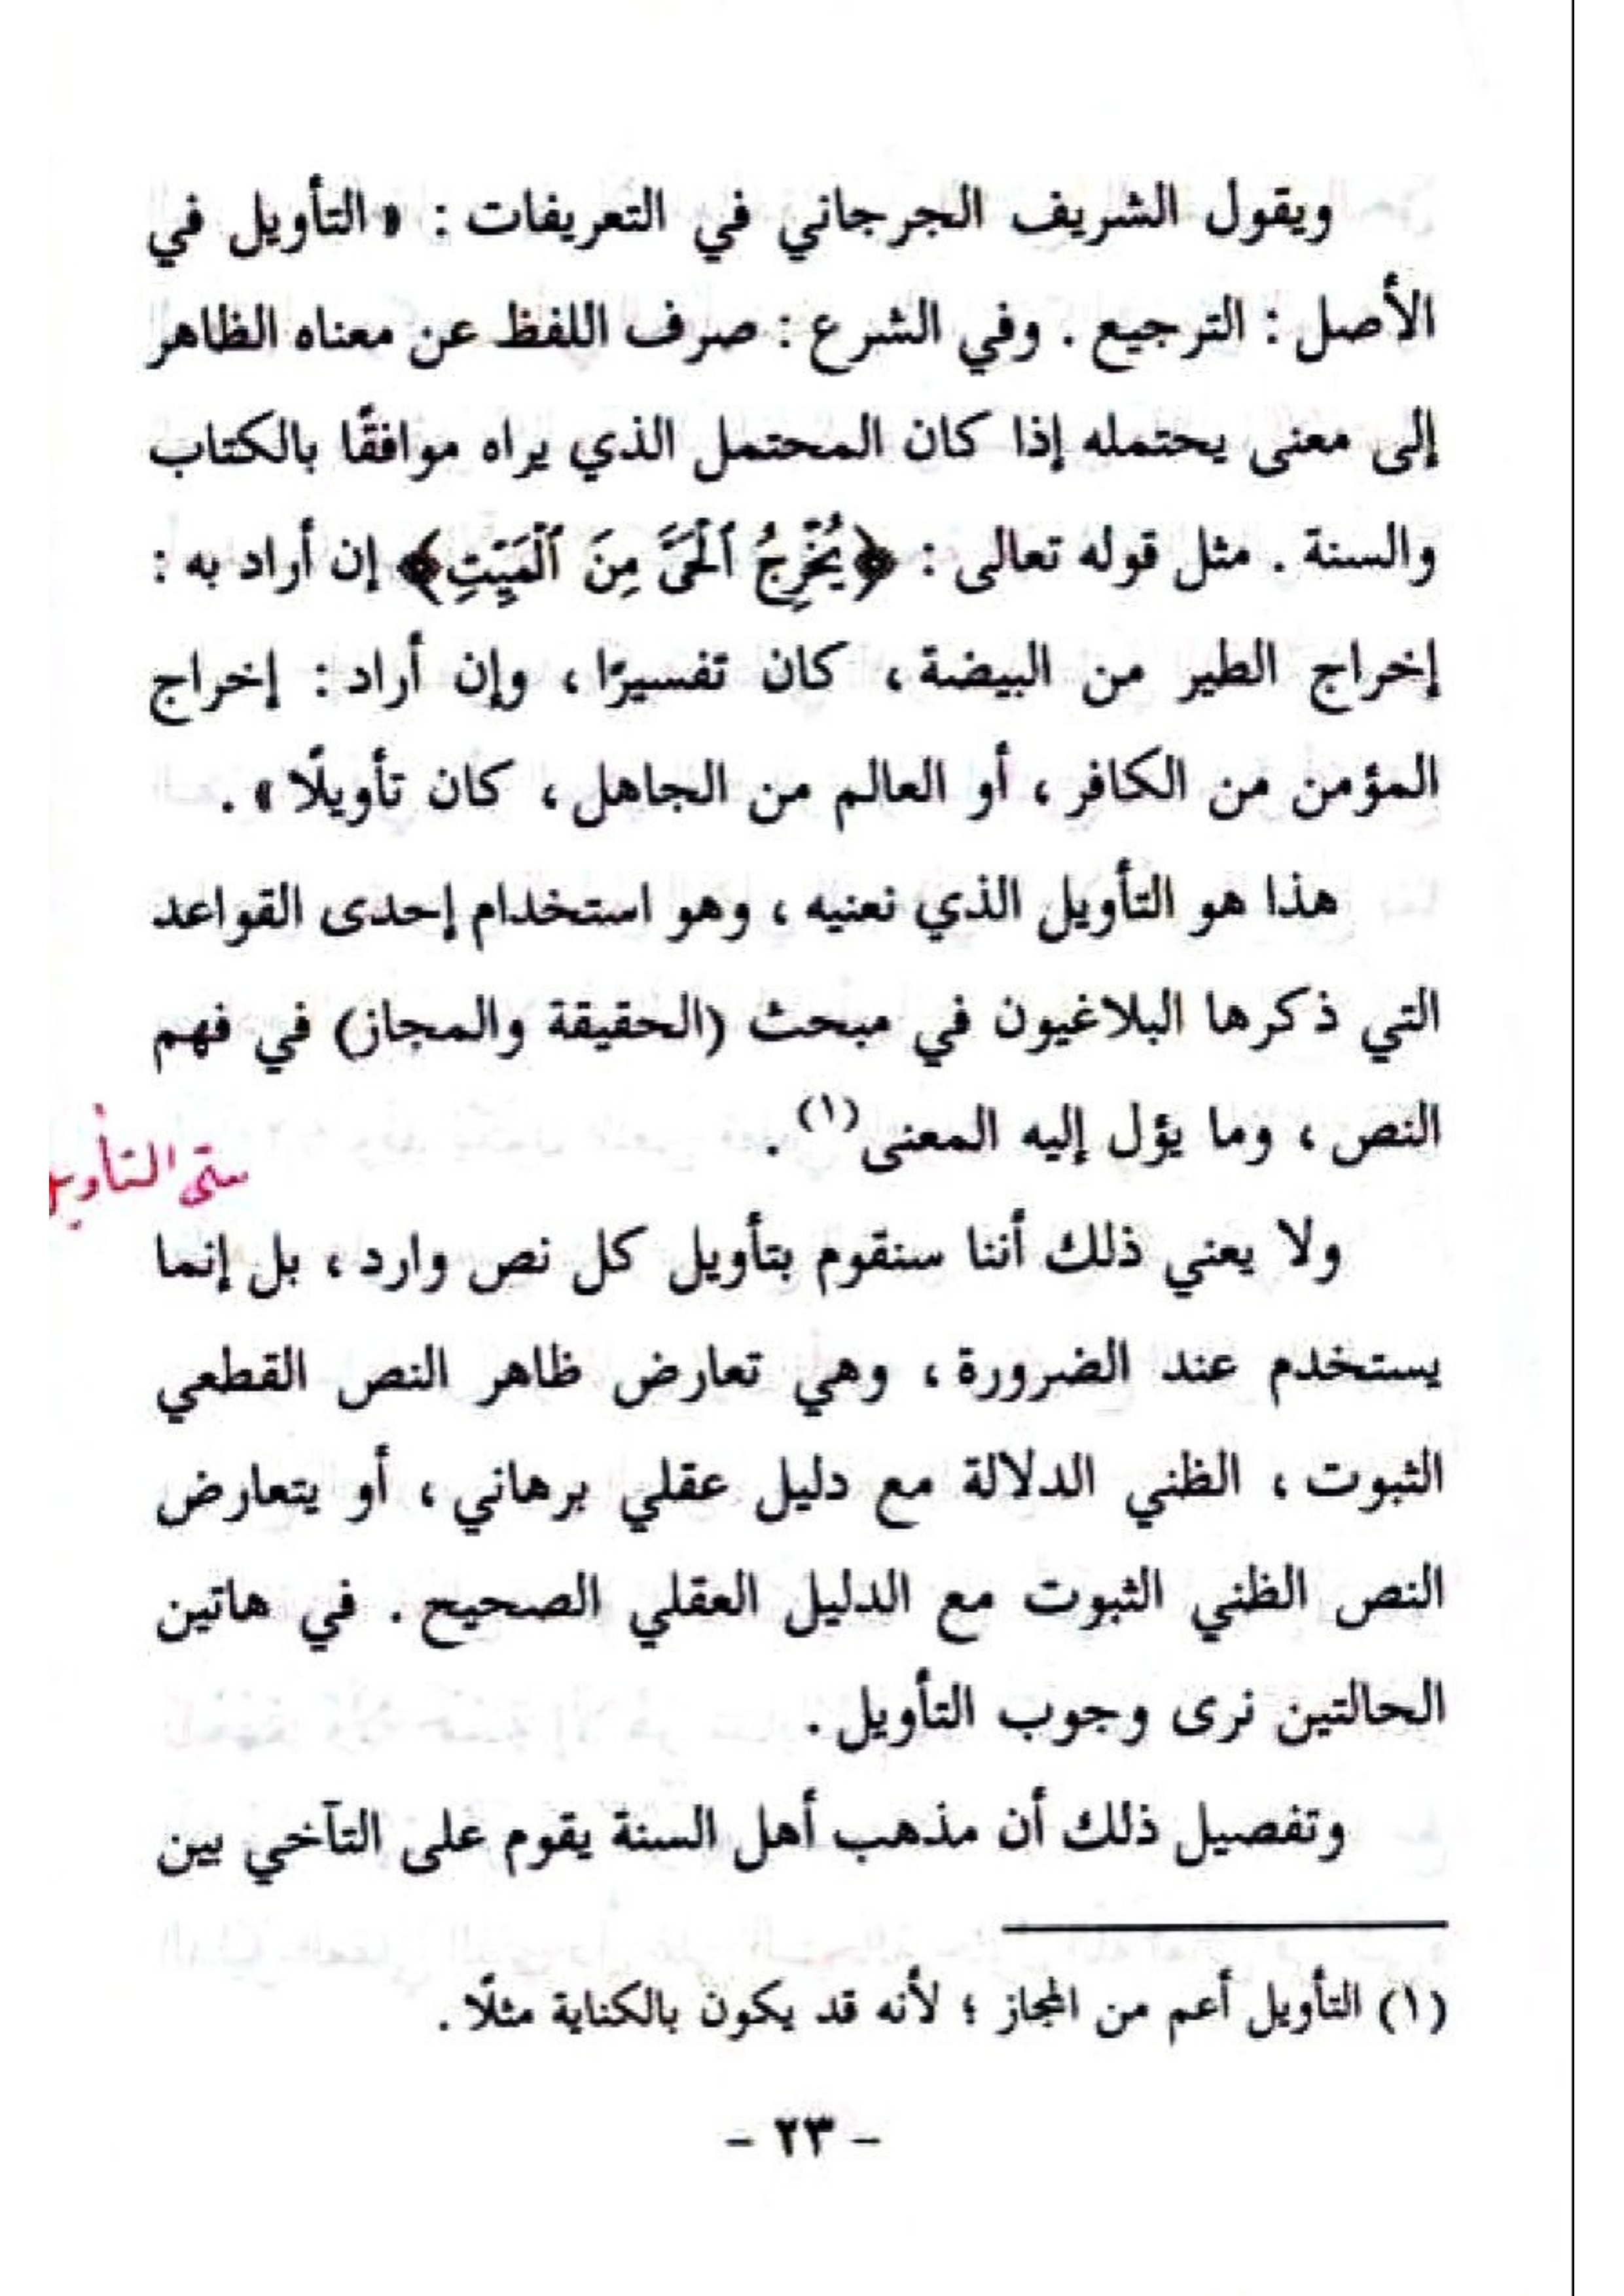 ويقول الشريف الجرجاني في التعريفات : « التأويل في
الأصل : الترجيع . وفي الشرع : صرف اللفظ عن معناه الظاهر
إلى معنى يحتمله إذا كان المحتمل الذي يراه موافقًا بالكتاب
والسنة . مثل قوله تعالى : ﴿يُخْرِجُ ٱلْحَىَّ مِنَ ٱلْمَيِّتِ﴾ إن أراد به :
إخراج الطير من البيضة ، كان تفسيرًا ، وإن أراد : إخراج
المؤمن من الكافر ، أو العالم من الجاهل ، كان تأويلًا » .
هذا هو التأويل الذي نعنيه ، وهو استخدام إحدى القواعد
التي ذكرها البلاغيون في مبحث (الحقيقة والمجاز) في فهم
النص ، وما يؤل إليه المعنى (١) .
متى التأوي
ولا يعني ذلك أننا سنقوم بتأويل كل نص وارد ، بل إنما
يستخدم عند الضرورة ، وهي تعارض ظاهر النص القطعي
الثبوت ، الظني الدلالة مع دليل عقلي برهاني ، أو يتعارض
النص الظني الثبوت مع الدليل العقلي الصحيح . في هاتين
الحالتين نرى وجوب التأويل .
وتفصيل ذلك أن مذهب أهل السنة يقوم على التآخي بين
(١) التأويل أعم من المجاز ؛ لأنه قد يكون بالكناية مثلًا .
- ٢٣ -